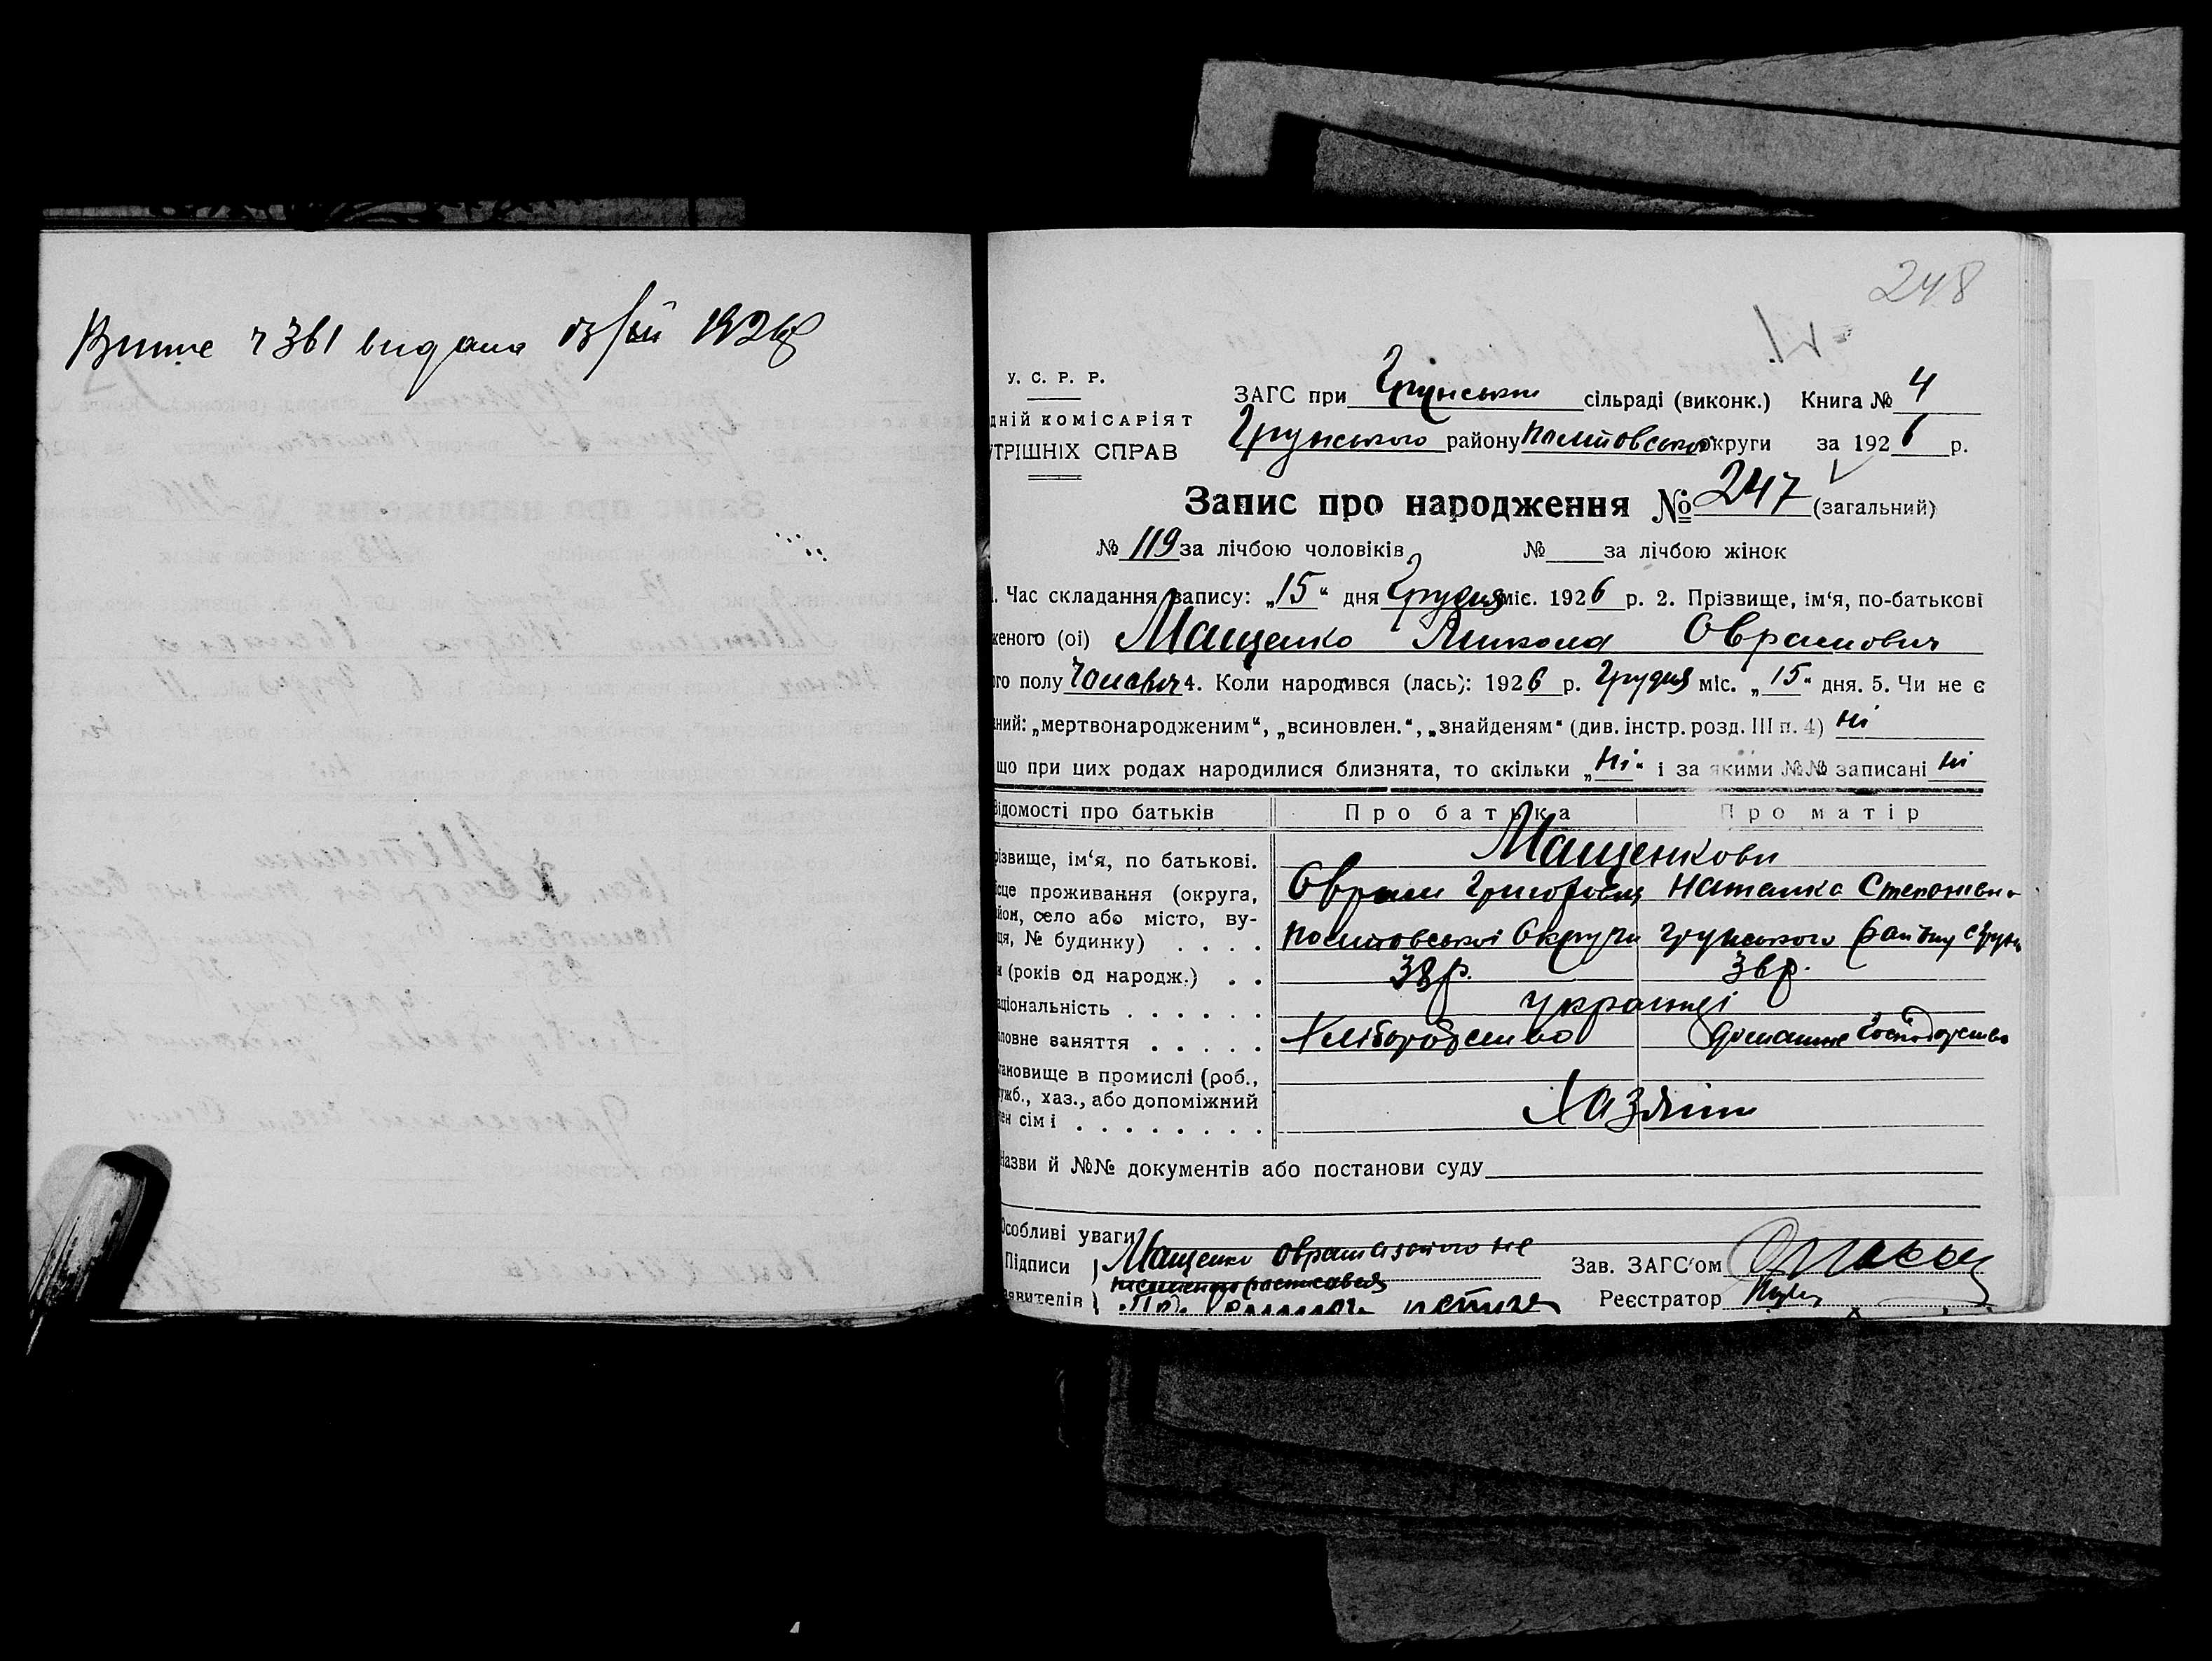 Виписс ч 361 видана 1926
248
У. С. Р. Р.
ДНІЙ КОМІСАРІЯТ
УТРІШНІХ СПРАВ
ЗАГС при Грунський сільраді (виконк.) Книга № 4
Грунського району Полтовської округи за 1926 р.
Запис про народження № 247 (загальний)
№ 119 за лічбою чоловіків № за лічбою жінок
1. Час складання запису: „15“ дня Грудня міс. 1926 р. 2. Прізвище, ім'я, по-батькові
женого (ої) Мащенко Микола Оврамович
го полу Чоловіч 4. Коли народився (лась): 1926 р. Грудня міс. „15“ дня. 5. Чи не є
ний: „мертвонародженим“, „всиновлен.“, „знайденям“ (див. інстр. розд. III п. 4) ні
що при цих родах народилися близнята, то скільки „ні“ і за якими №№ записані ні
Відомості про батьків Про батька Про матір
різвище, ім‘я, по батькові. Мащенкови
сце проживання (округа, Оврам Григорович Наталка Степановна
йон, село або місто, ву-
ця, № будинку) . . . . Полтовської Округи Грунського району с Грунь
и (років од народж.) . . 38 р. 36 р.
аціональність . . . . . . Українці
ловне заняття . . . . . Хліборобство Домашне Господарство
тановище в промислі (роб.,
ужб., хаз., або допоміжний Хазяїни
ен сім ї . . . . . . . .
Назви й №№ документів або постанови суду
Особливі уваги
Підписи Мащенко Оврам Зав. ЗАГС'ом
неписьменного росписався
явителів Реєстратор